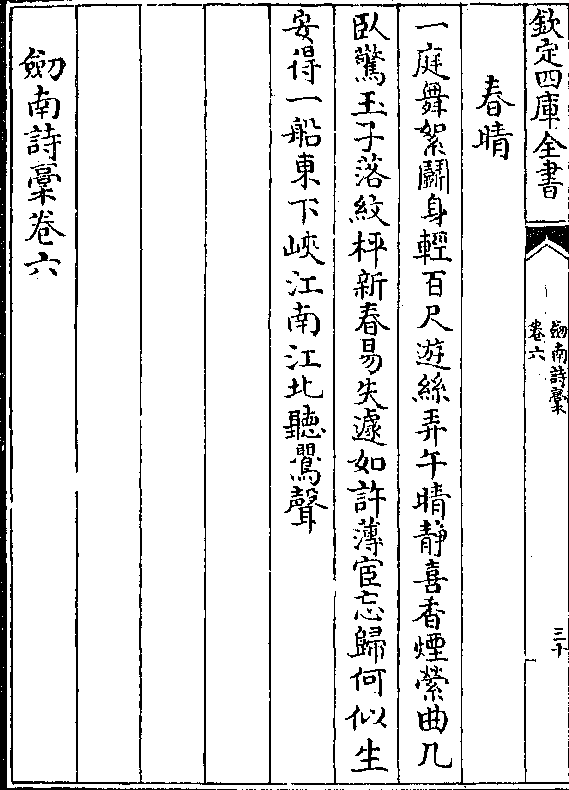 欽定四庫全書
劒南詩稾
卷六
三十
春晴
一庭舞絮鬬身輕百尺遊絲弄午晴靜喜香煙縈曲几
臥驚玉子落紋枰新春易失遽如許薄宦忘歸何似生
安得一船東下峽江南江北聽鶯聲
劒南詩稾卷六